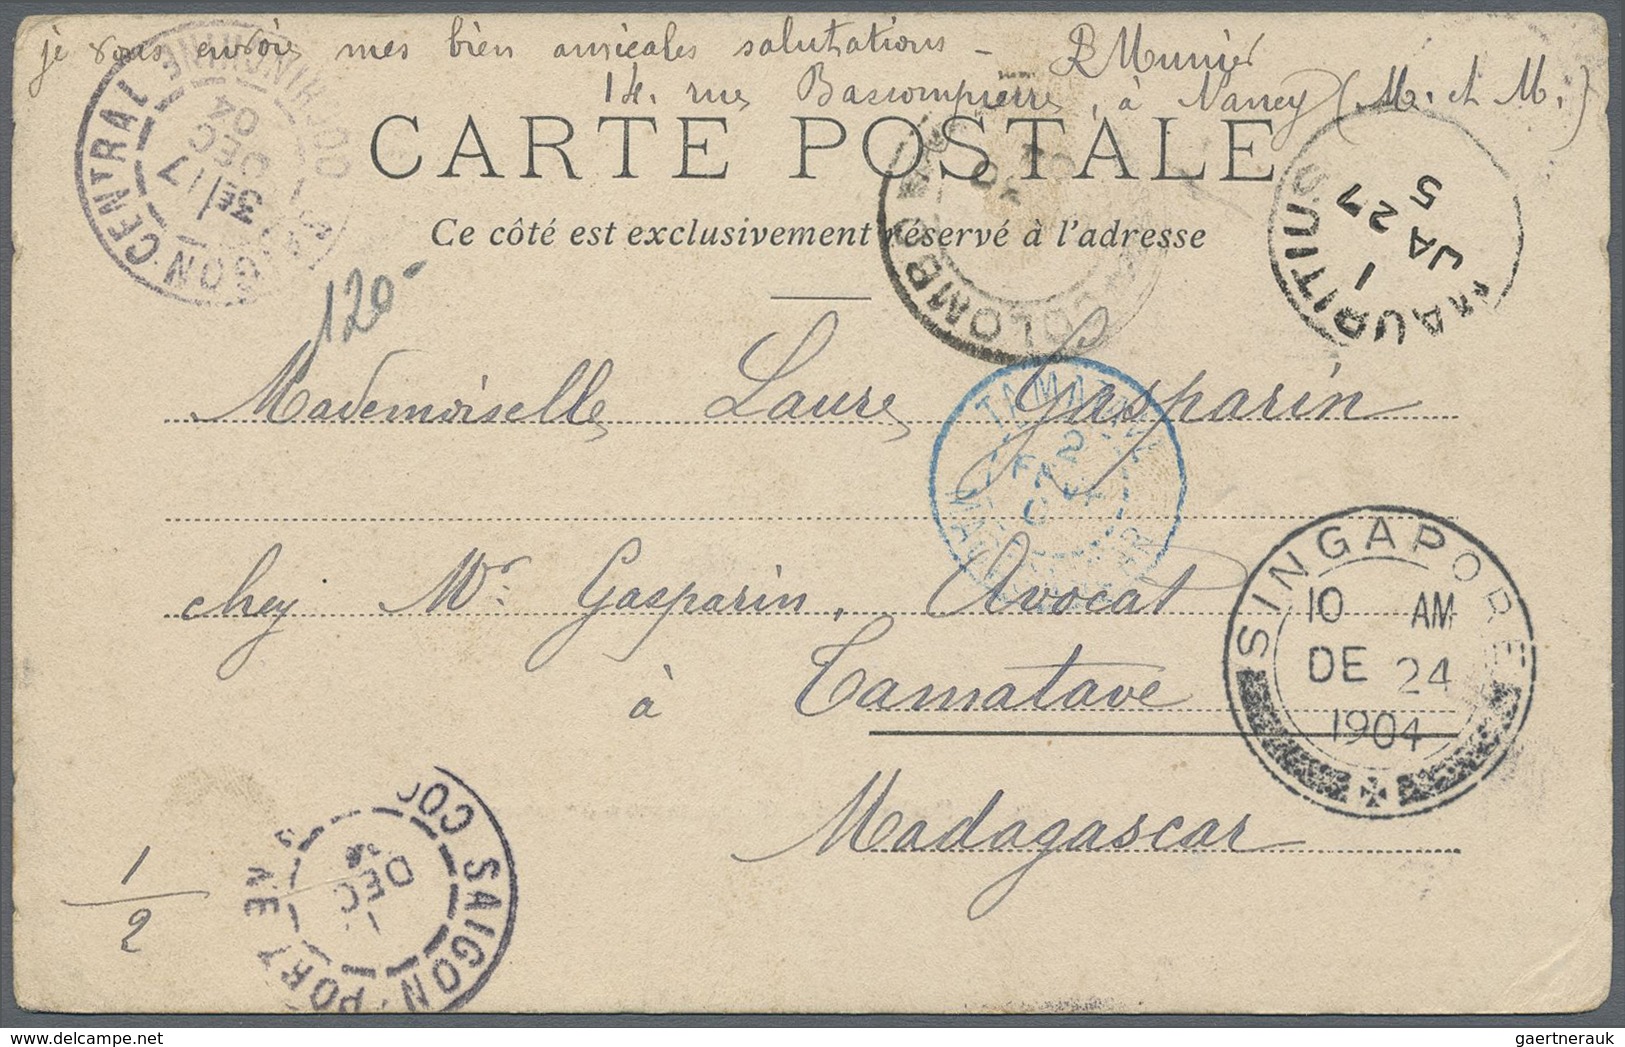 je vous envoie mes bien amicales salutations - R Munier
14. rue Bassompierre, à Nancy (M. et M.)
CARTE POSTALE
Ce côté est exclusivement réservé à l'adresse
SAIGON-CENTRAL COCHINCHINE
3E 17
DEC
04
COLOMBO
MAURITIUS
1
JA 27
5
120-
Mademoiselle Laure Gasparin
TAMATAVE
2
chez Mr Gasparin, Avocat
à Tamatave
Madagascar
SINGAPORE
10 AM
DE 24
1904
SAIGON-PORT COC NE
DEC
1/2
gaertnerauk